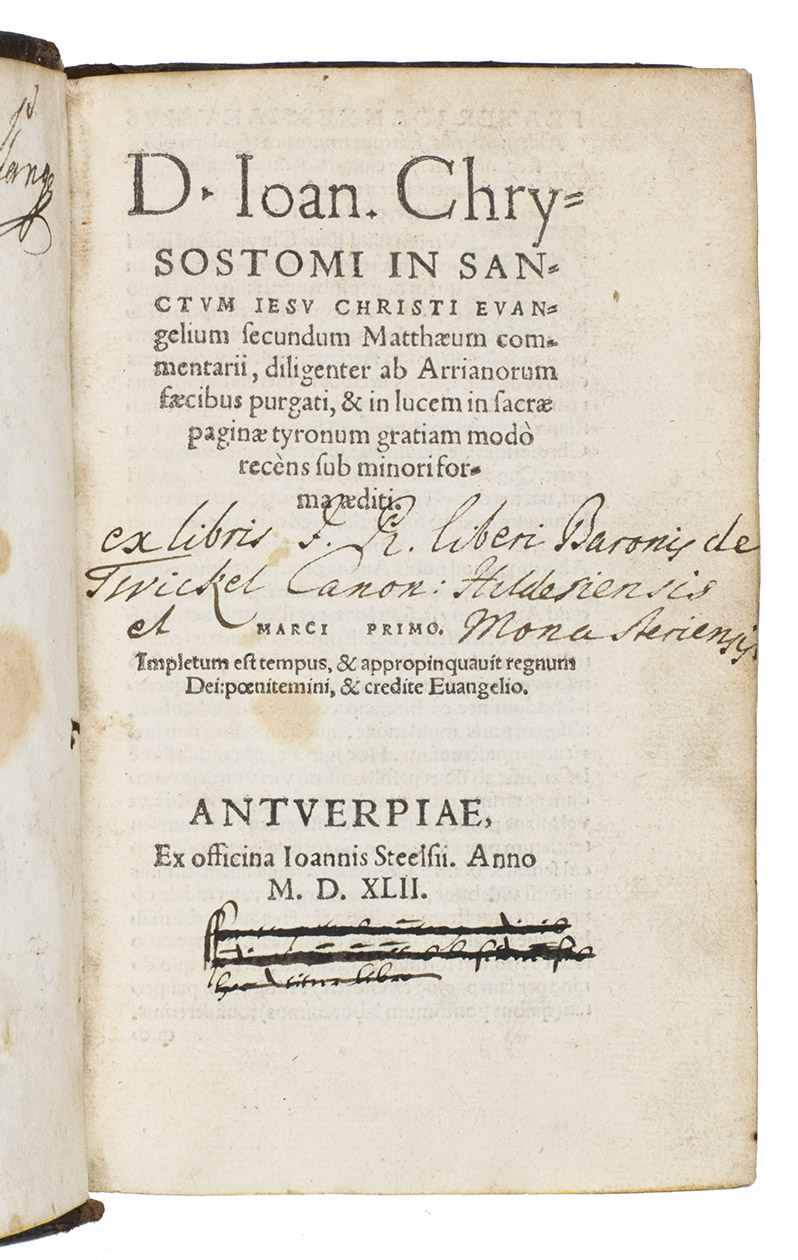 D. Ioan. Chry-
SOSTOMI IN SAN-
CTVM IESV CHRISTI EVAN-
gelium ſecundum Matthæum com-
mentarii, diligenter ab Arrianorum
fæcibus purgati, & in lucem in ſacræ
paginæ tyronum gratiam modò
recèns ſub minori for-
ma æditi.
ex libris F. R. liberi Baronis de
Twickel Canon: Hildesiensis
et Monasteriensis
MARCI PRIMO.
Impletum eſt tempus, & appropinquauit regnum
Dei: pœnitemini, & credite Euangelio.
ANTVERPIAE,
Ex officina Ioannis Steelſii. Anno
M. D. XLII.
libro